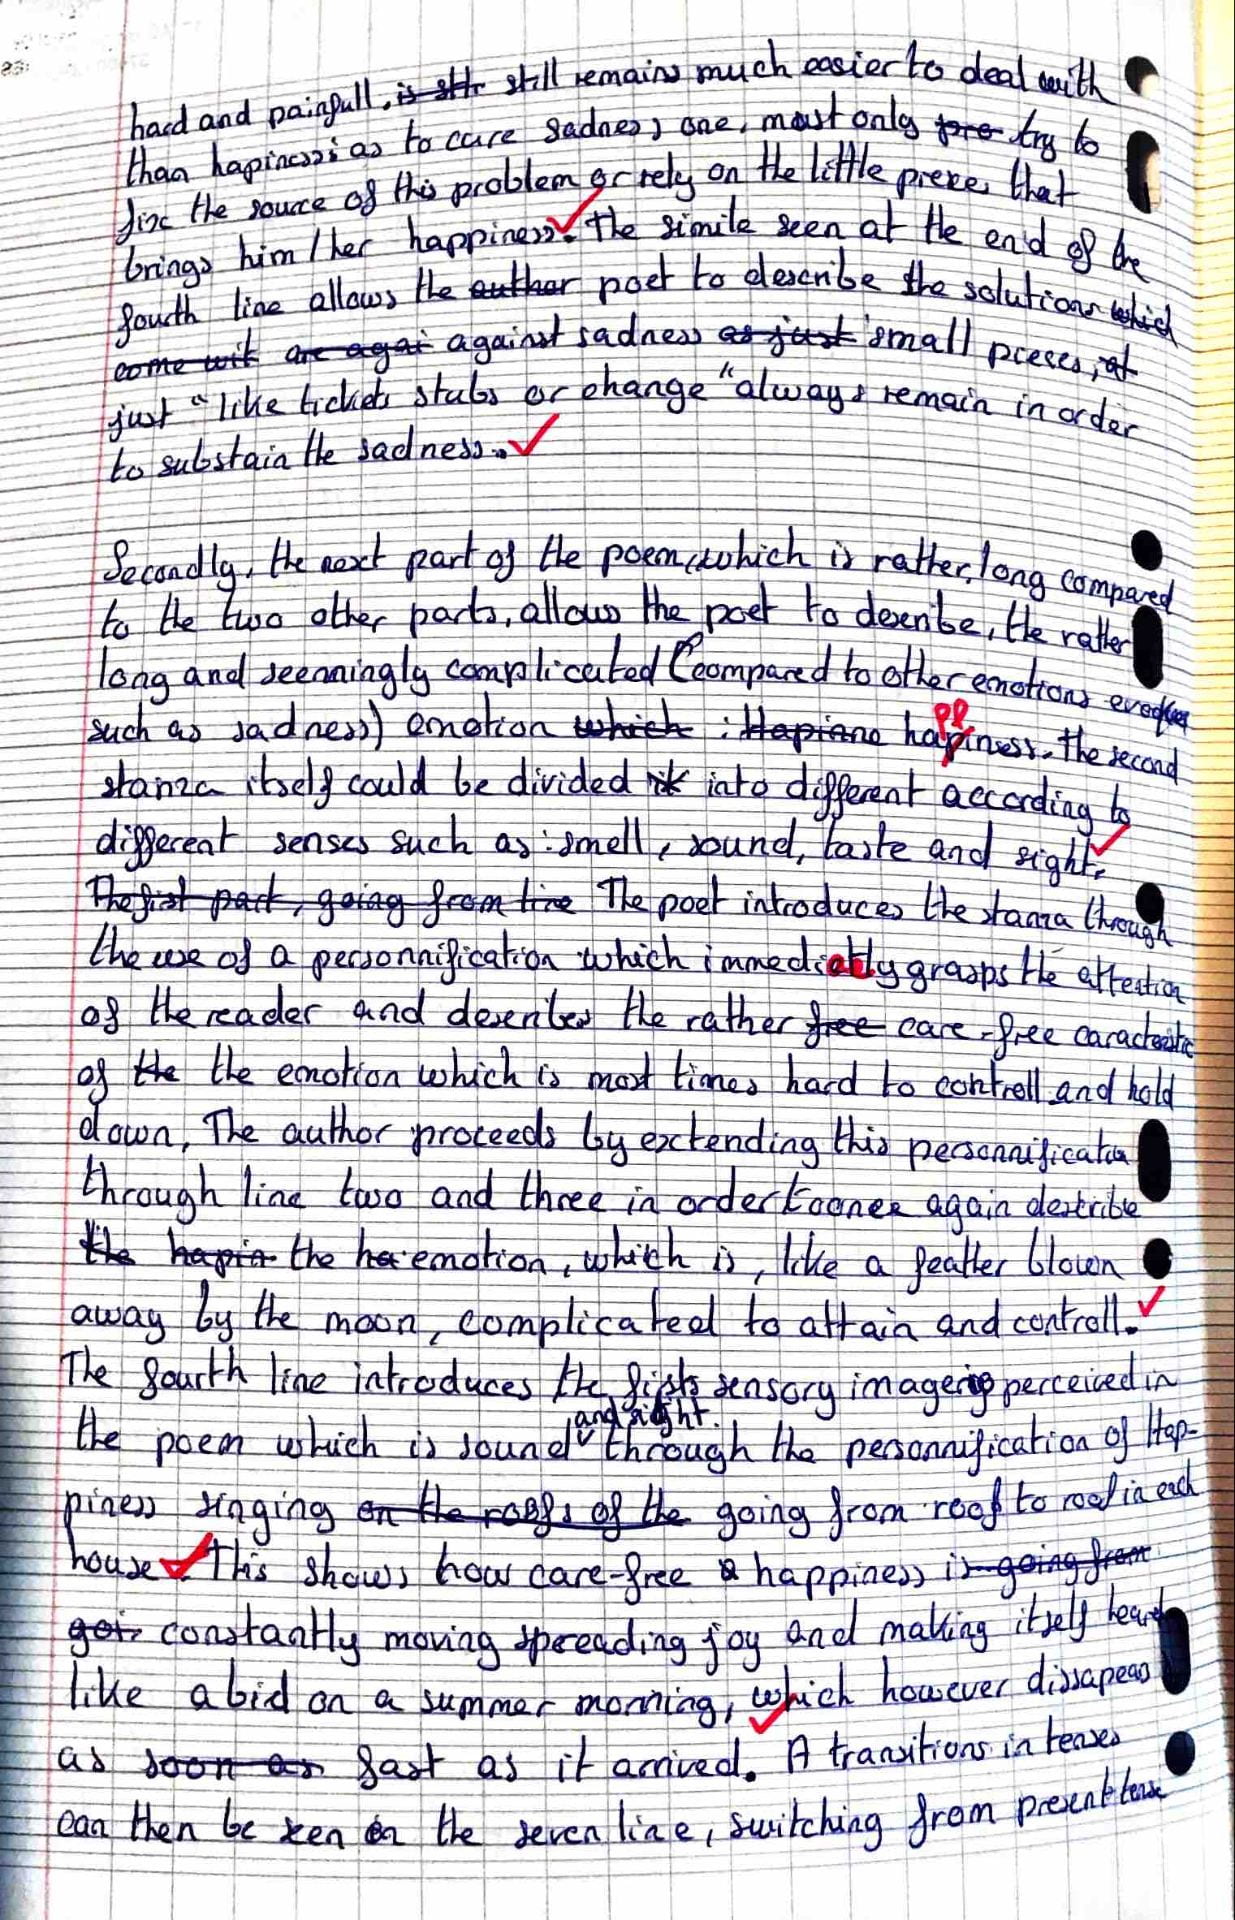 hard and painfull, is sttr still remains much easier to deal with
than hapiness: as to cure sadness one, must only pro try to
finc the source of this problem or rely on the little piece, that
brings him/her happiness. The simile seen at the end of the
fourth line allows the author poet to describe the solutions which
come wit are agai against sadness as just small pieces, at
just "like tickets stubs or change" always remain in order
to substain the sadness.
Secondly, the next part of the poem, which is rather, long compared
to the two other parts, allows the poet to describe, the rather
long and seemingly complicated (compared to other emotions evoqued
such as sadness) emotion which : Hapinne happiness. The second
stanza itself could be divided it into different according to
different senses such as : smell, sound, taste and sight.
The fist part, going from line The poet introduces the stanza through
the use of a personnification which immediatly grasps the attention
of the reader and describes the rather free care-free caracteristic
of the the emotion which is most times hard to controll and hold
down, The author proceeds by extending this personnification
through line two and three in order to once again describe
the hapin the ha emotion, which is, like a feather blown
away by the moon, complicated to attain and controll.
The fourth line introduces the firsts sensory imagerie perceived in
and sight.
the poem which is sound through the personnification of Hap-
piness singing on the roofs of the going from roof to roof in each
house. This shows how care-free a happiness is going from
goi constantly moving spreading joy and making itself heard
like a bid on a summer morning, which however dissapears
as soon as fast as it arrived. A transitions in tenses
can then be seen in the seven line, switching from present tense